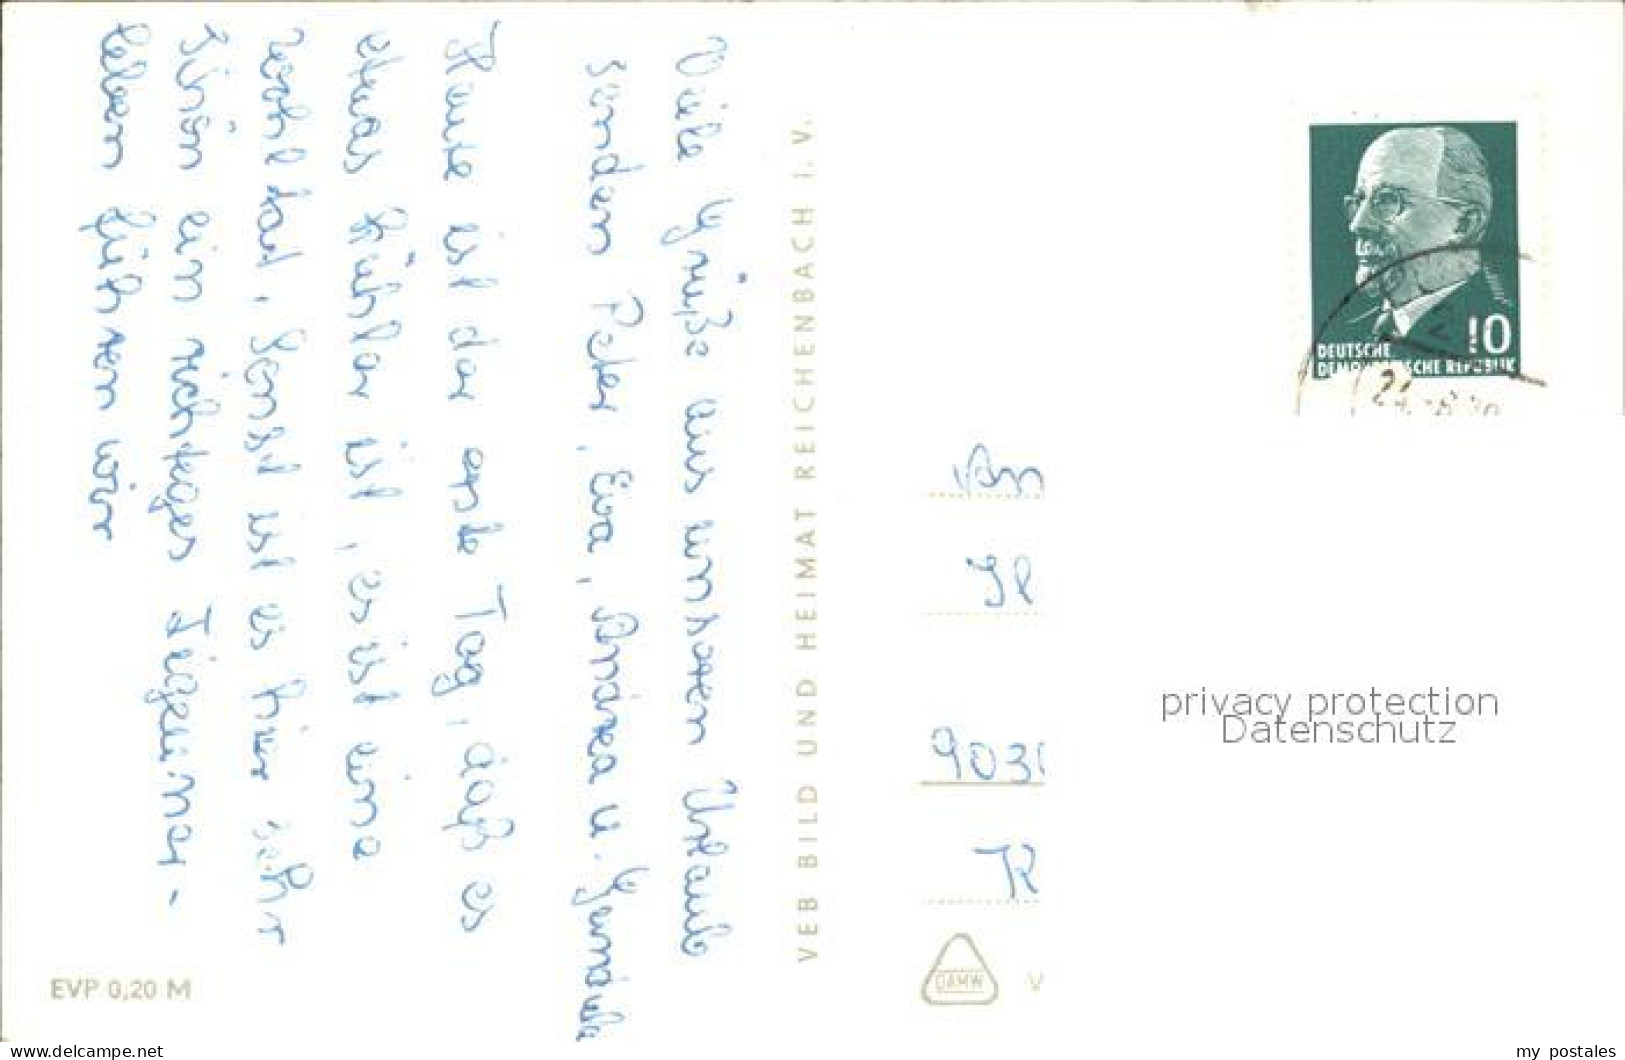 Viele Grüße aus unseren Urlaub
senden Peter, Eva, Andrea u.
Heute ist der erste Tag, daß es
etwas kühler ist, es ist eine
Wohltat. Sonst ist es hier sehr
schön ein richtiges
leben führen wir
VEB BILD UND HEIMAT REICHENBACH I. V.
EVP 0,20 M
10
DEUTSCHE
DEMOKRATISCHE REPUBLIK
An
903
DAMW
V
privacy protection
Datenschutz
delcampe.net
my postales